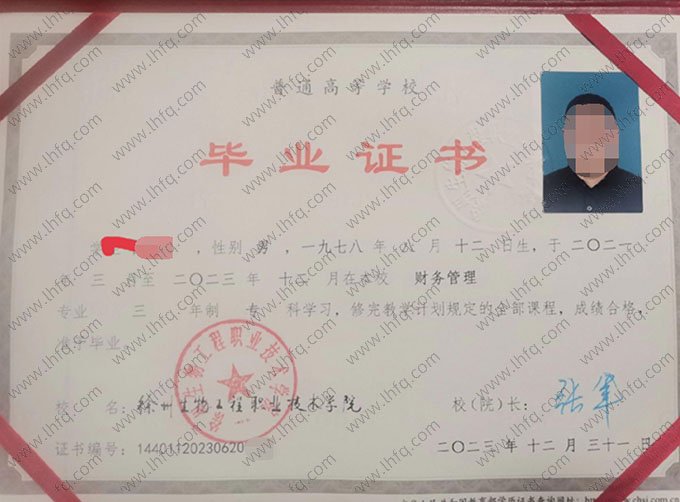 普通高等学校
毕业证书
，性别 男 ，一九七八 年 八 月 十二 日生，于 二〇二一
年 三 月至 二〇二三 年 十二 月在本校 财务管理
专业 三 年制 专 科学习，修完教学计划规定的全部课程，成绩合格，
准予毕业
徐州生物工程职业技术学院
校 名：徐州生物工程职业技术学院
校（院）长：张军
证书编号：14401120230620
二〇二三 年 十二 月 三十一 日
www.lhfq.com